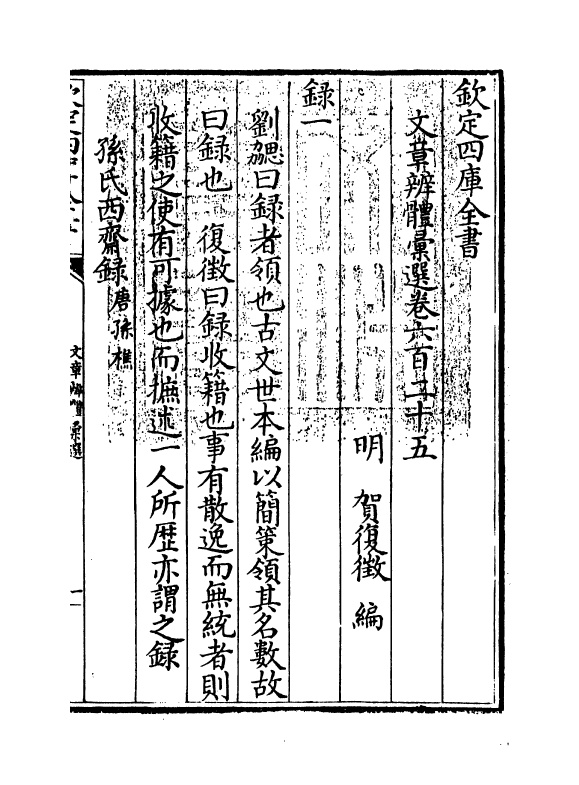 欽定四庫全書
文章辨體彙選卷六百二十五
明 賀復徵 編
録一
劉勰曰録者領也古文世本編以簡策領其名數故
曰録也 復徵曰録收籍也事有散逸而無統者則
收籍之使有可據也而摭述一人所歴亦謂之録
孫氏西齋録 唐孫樵
文章辨體彙選
一